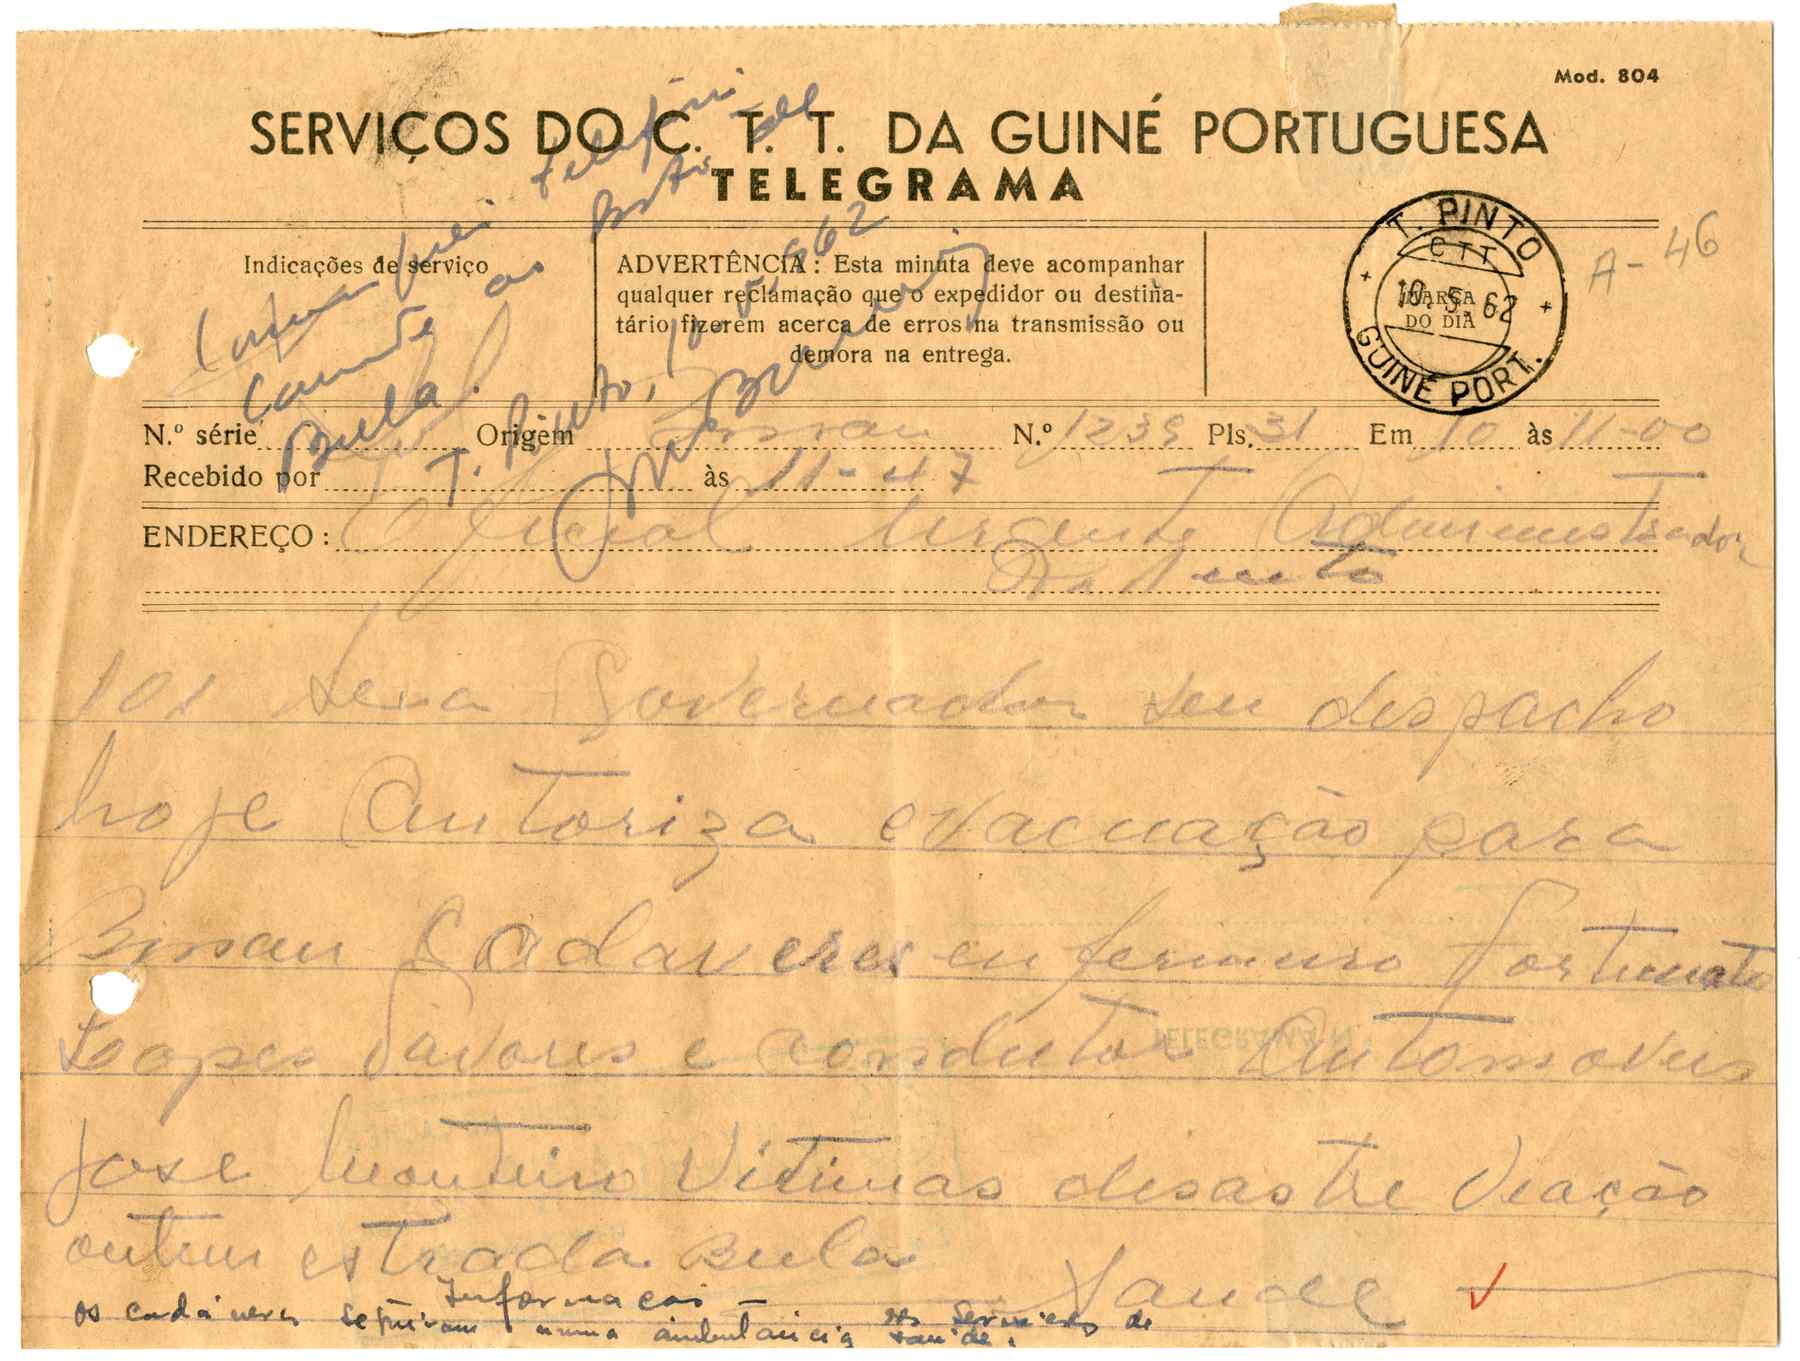 Mod. 804
SERVIÇOS DO C. T. T. DA GUINÉ PORTUGUESA
TELEGRAMA
Indicações de serviço
ADVERTÊNCIA: Esta minuta deve acompanhar
qualquer reclamação que o expedidor ou destina-
tário fizerem acerca de erros na transmissão ou
demora na entrega.
T. PINTO
CTT
MARCA
DO DIA
10. 5. 62
GUINÉ PORT.
A-46
telefoni
camente ao Posto
Bula.
T. Pinto, 10-5-962
N.º série Origem Bissau N.º 1239 Pls. 31 Em 10 às 11-00
Recebido por às 11-47
ENDEREÇO: Oficial Urgente Administrador
Pinto
101 sexa Governador seu despacho
hoje Autoriza evacuação para
Bissau Cadaveres enfermeiro Fortunato
Lopes Tavares e condutor Automoveis
Jose Monteiro Vitimas desastre Viação
ontem estrada Bula
Saude
Informação
os cadáveres seguiram numa ambulância dos Serviços de
saúde.
TELEGRAMA N.